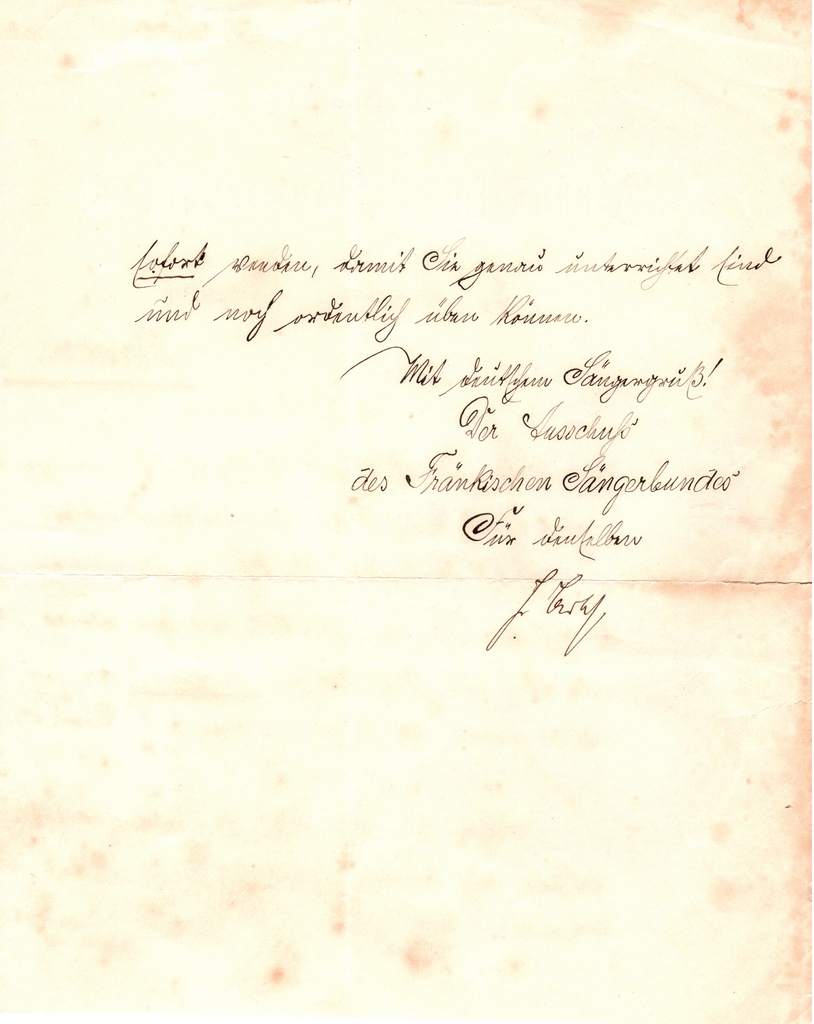 sofort wenden, damit Sie genau unterrichtet sind
und noch ordentlich üben können.
Mit deutschem Sängergruß!
Der Ausschuß
des Fränkischen Sängerbundes
Für denselben